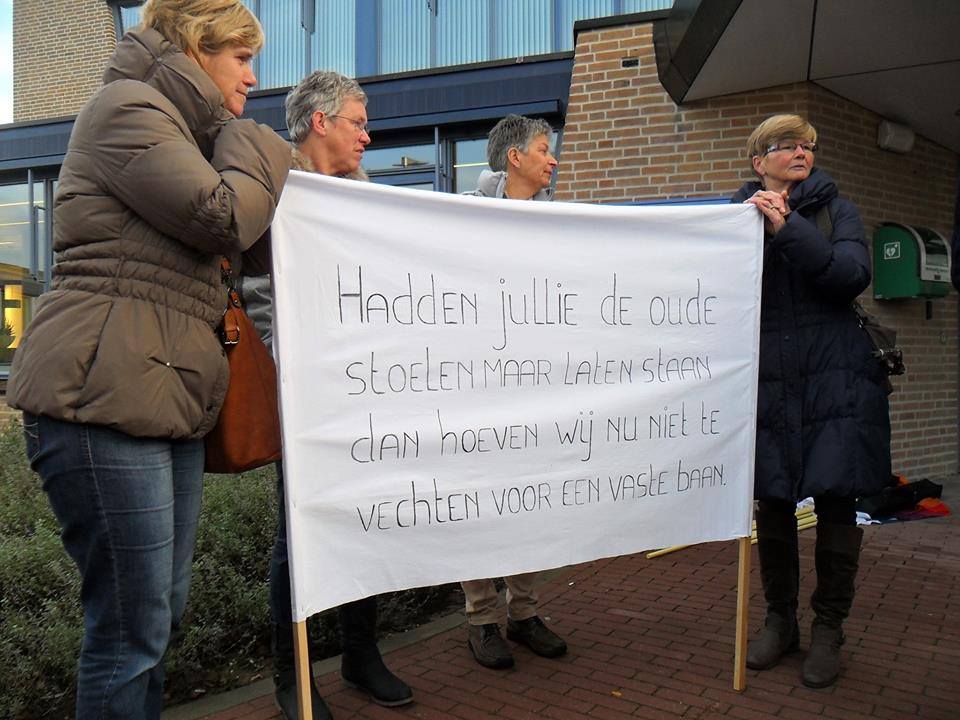 Hadden jullie de oude
stoelen maar laten staan
dan hoeven wij nu niet te
vechten voor een vaste baan.